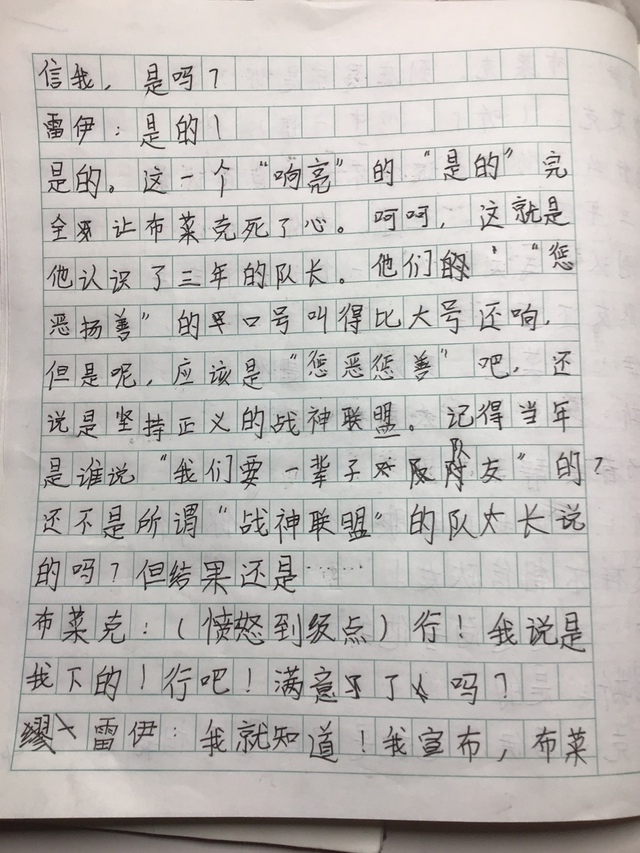 信我，是吗？
雷伊：是的！
是的。这一个“响亮”的“是的”完
全让布莱克死了心。呵呵，这就是
他认识了三年的队长。他们的“惩
恶扬善”的口号叫得比大号还响，
但是呢，应该是“惩恶惩善”吧，还
说是坚持正义的战神联盟。记得当年
是谁说“我们要一辈子队友”的？
还不是所谓“战神联盟”的队长说
的吗？但结果还是……
布莱克：（愤怒到级点）行！我说是
我下的！行吧！满意了吗？
雷伊：我就知道！我宣布，布莱